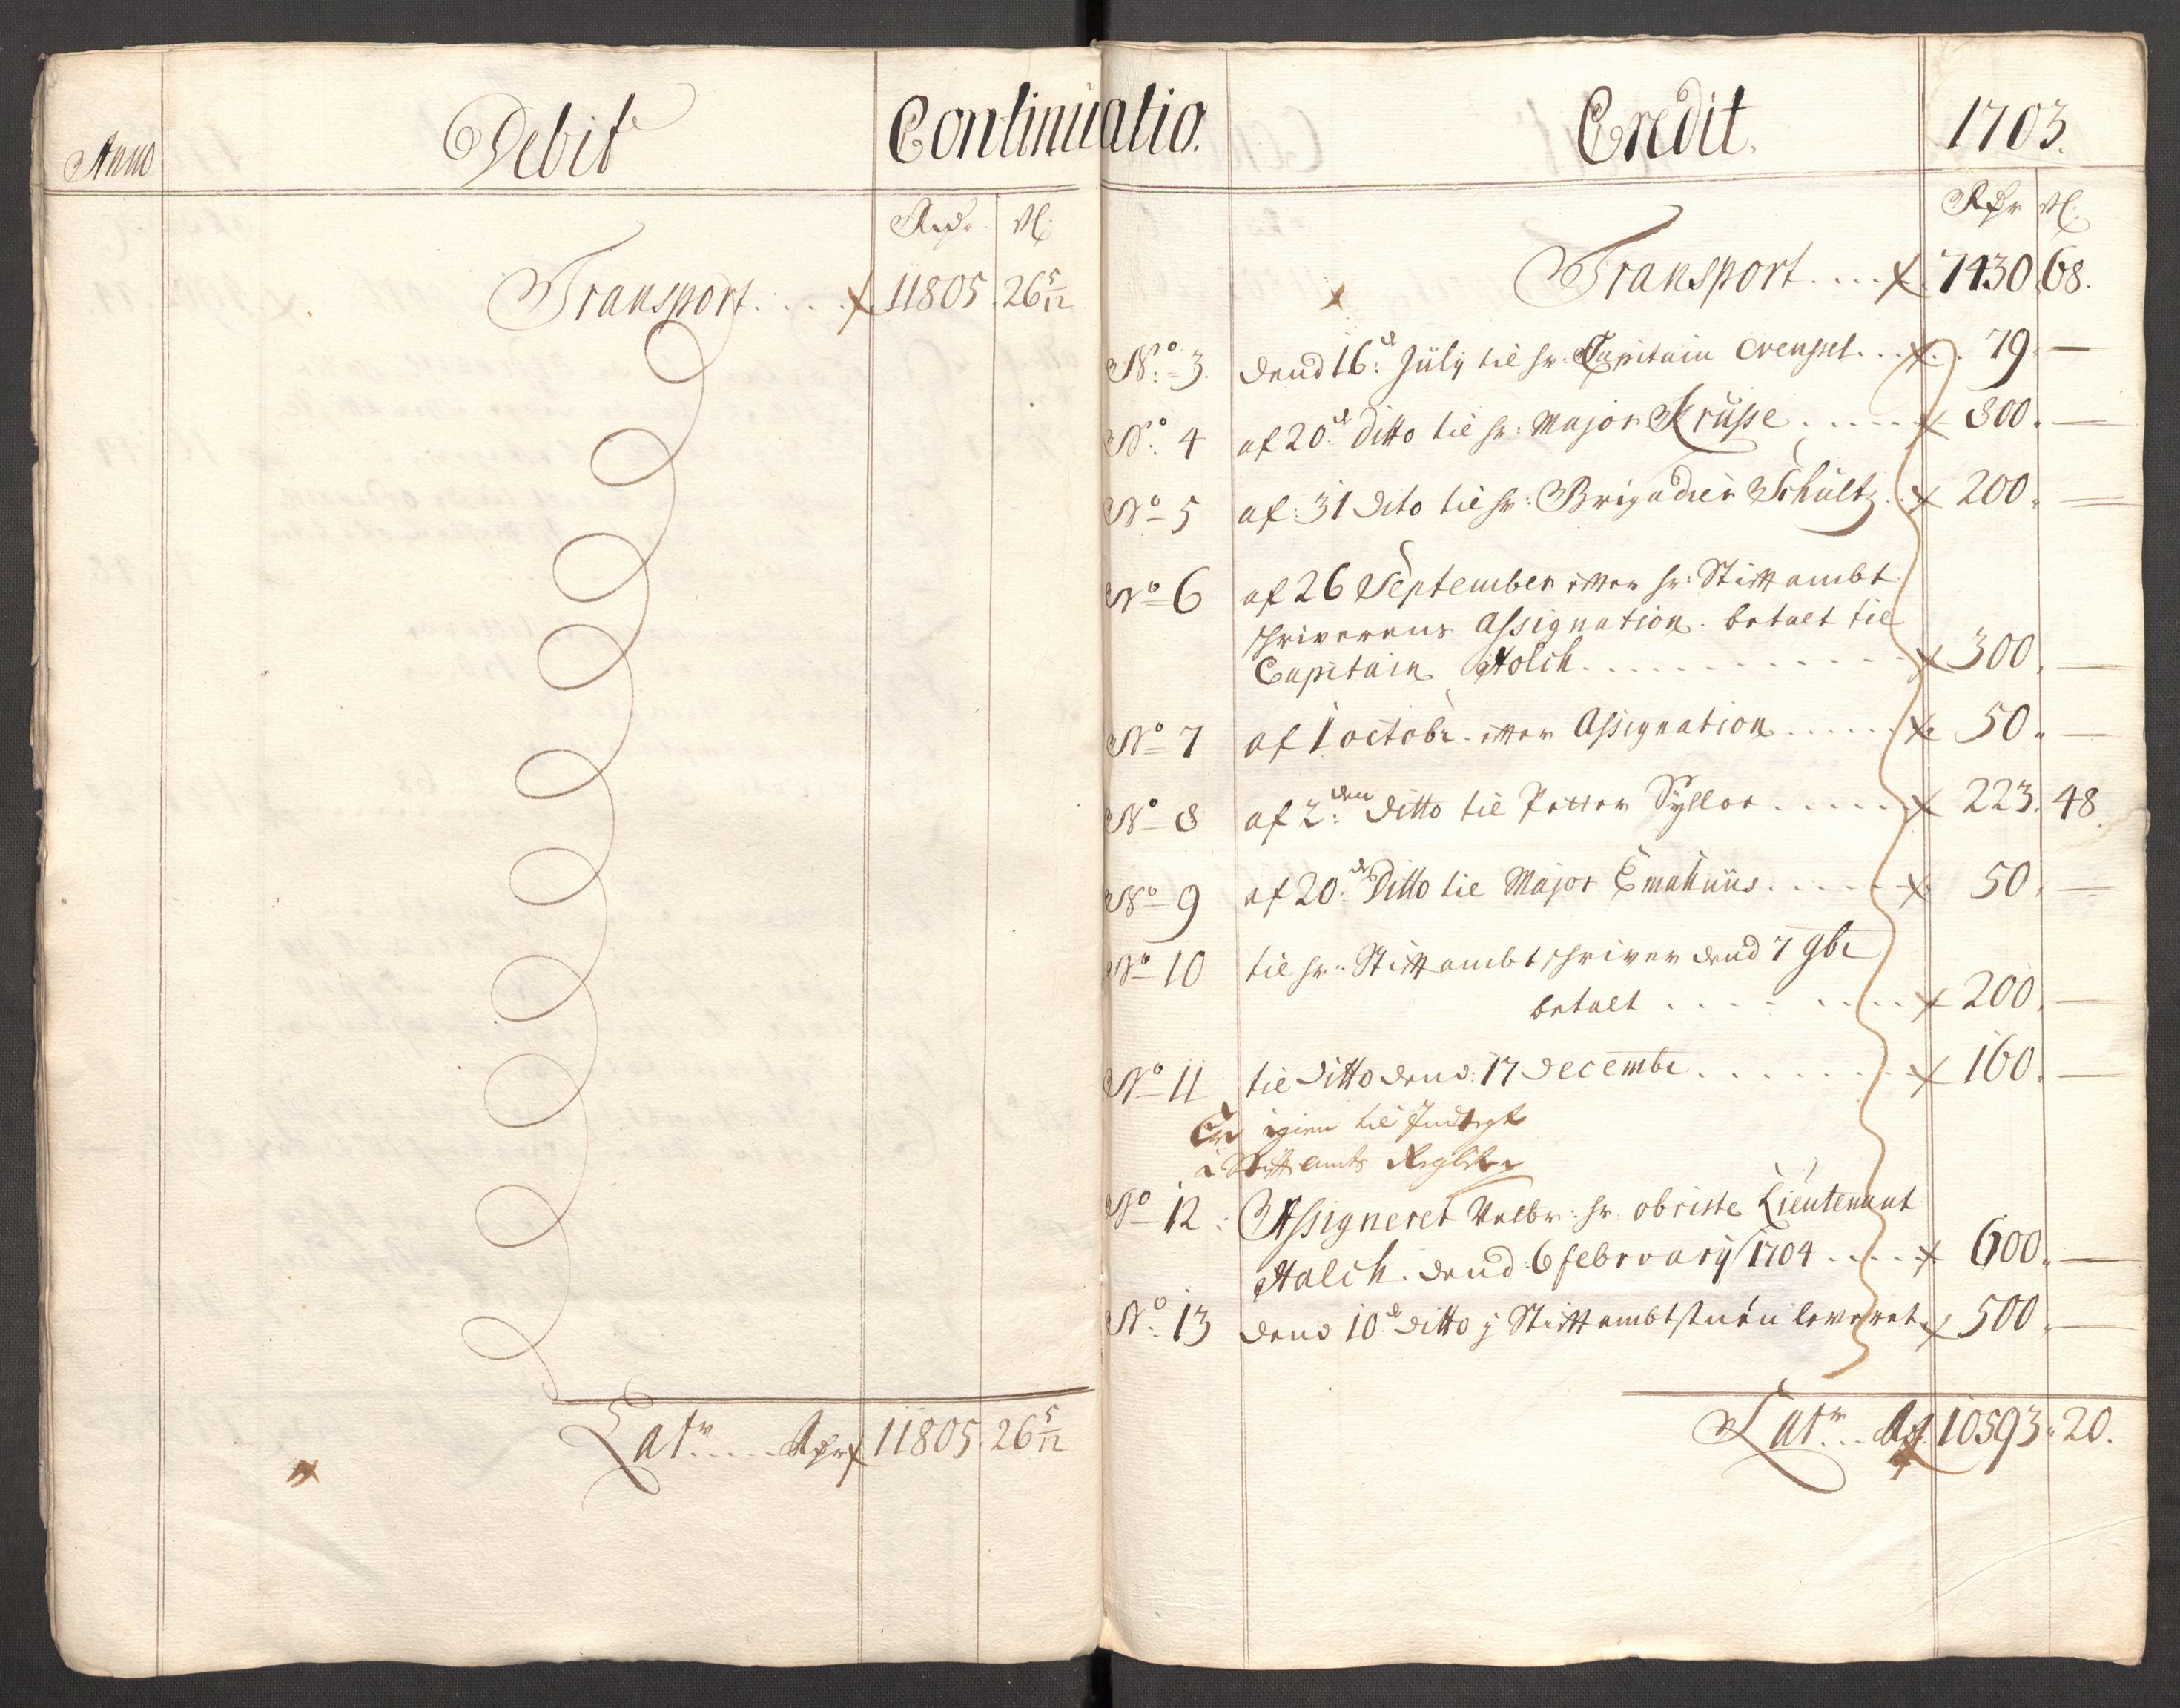 Anno Debit Continuatio. Credit. 1703.
Rdr ß
Transport .... 11805. 26 5/12
Rdr ß
Transport .... 7430. 68.
No. 3. dend 16d: July til hr. Capitain .... 79. —
No. 4 af 20d ditto til hr: Major Kruse ..... 800. —
No 5 af 31 dito til hr: Brigadier Schultz .. 200. —
No 6 af 26 September efter hr: Stiftambt
schriverens Assignation. betalt til
Capitain Holch ........... 300. —
No 7 af 1 octobr. efter Assignation ..... 50. —
No 8 af 2den ditto til Petter Sylloe ..... 223. 48.
No 9 af 20de Ditto til Major Emahuus ..... 50. —
No 10 til hr: Stiftambtschriver dend 7 9br
betalt ....... 200. —
No 11 til ditto dend: 17 decembr ....... 160. —
Er igien til Indtegt
i Stiftamts Register
No 12: Assigneret Velbr: hr: obriste Lieutenant
Halch. dend: 6 february 1704 .... 600. —
No. 13 dend 10d ditto j Stiftambtstuen leveret 500. —
Latr .... Rdr 11805. 26 5/12
Latr... Rd. 10593. 20.